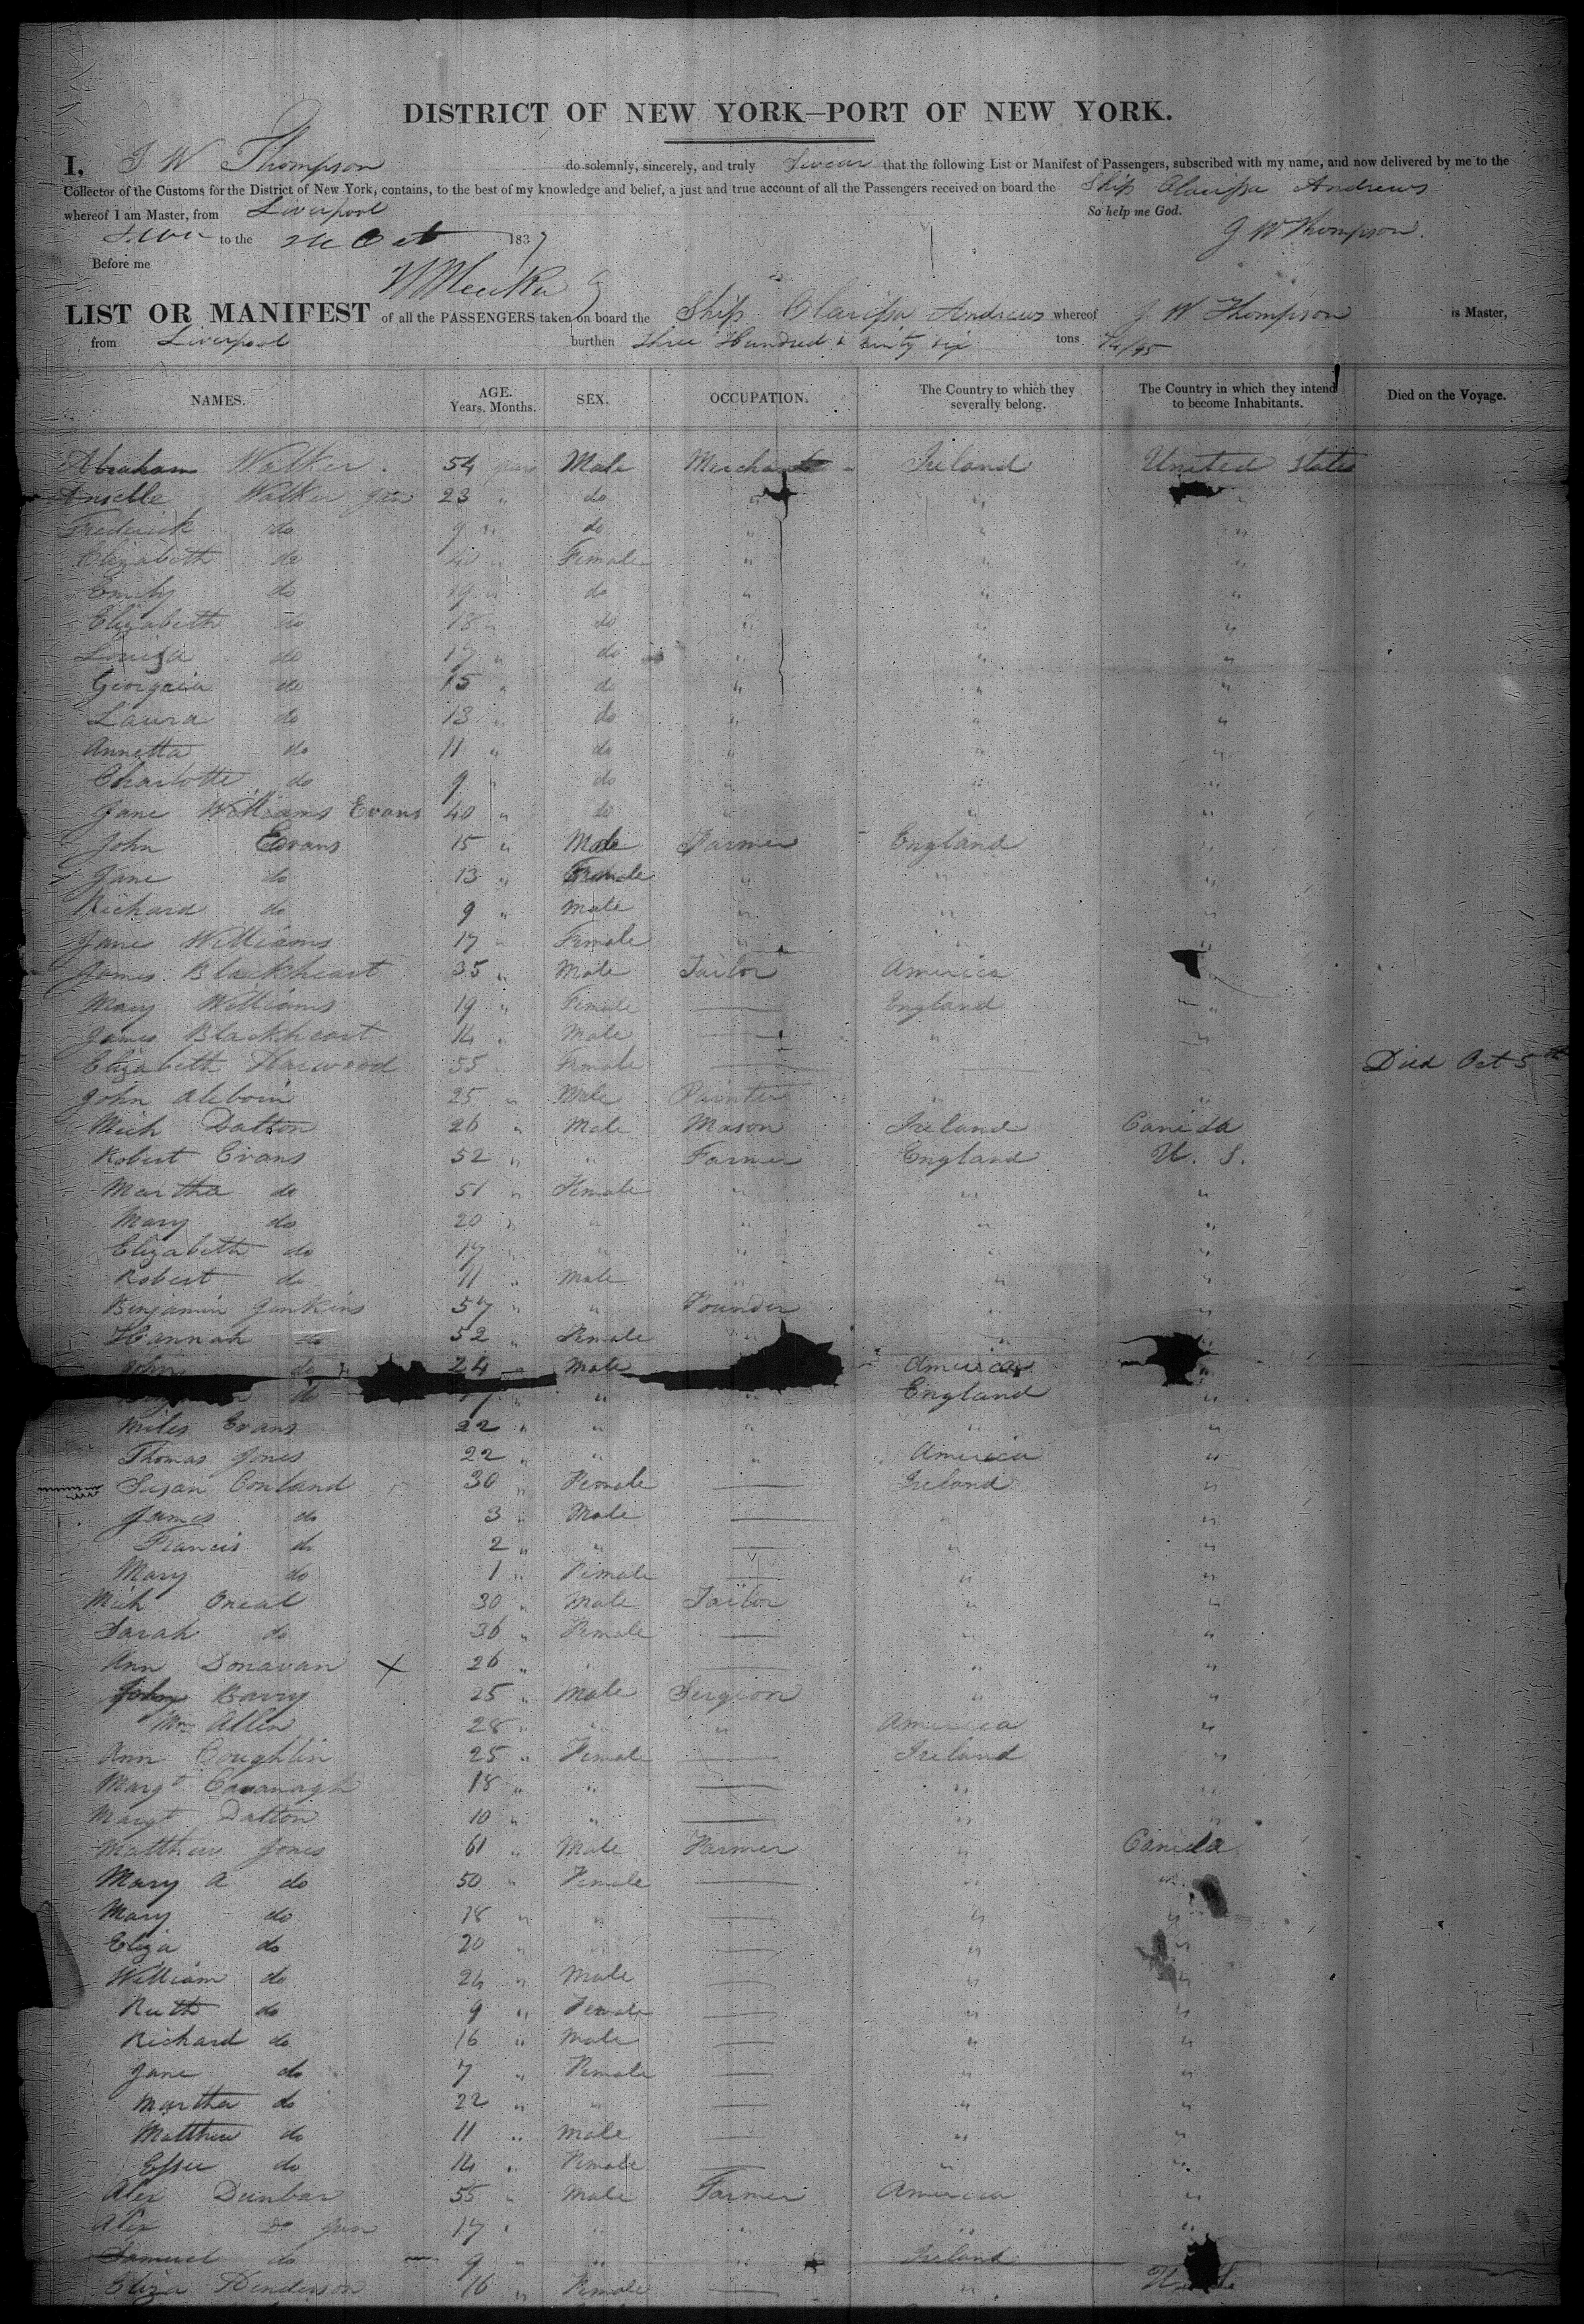 DISTRICT OF NEW YORK—PORT OF NEW YORK.
I, J W Thompson do solemnly, sincerely, and truly Swear that the following List or Manifest of Passengers, subscribed with my name, and now delivered by me to the
Collector of the Customs for the District of New York, contains, to the best of my knowledge and belief, a just and true account of all the Passengers received on board the Ship Clarissa Andrews
whereof I am Master, from Liverpool So help me God.
to the Oct 1837 J W Thompson.
Before me
LIST OR MANIFEST of all the PASSENGERS taken on board the Ship Clarissa Andrews whereof J W Thompson is Master,
from Liverpool burthen Three Hundred & ninty six tons /95
NAMES. AGE. Years. Months. SEX. OCCUPATION. The Country to which they severally belong. The Country in which they intend to become Inhabitants. Died on the Voyage.
Abraham Walker. 54 years Male Merchant Ireland United States
Walker 23 " do " " "
Frederick do 9 " do " " "
Elizabeth do 40 " Female " " "
Emily do 19 " do " " "
Elizabeth do 18 " do " " "
Louisa do 17 " do " " "
do 15 " do " " "
Laura do 13 " do " " "
Annetta do 11 " do " " "
Charlotte do 9 " do " " "
Jane Williams Evans 40 " do " " "
John Evans 15 " Male Farmer England "
Jane do 13 " Female " " "
Richard do 9 " Male " " "
Jane Williams 17 " Female " " "
James Blackheart 35 " Male Tailor America "
Mary Williams 19 " Female — England "
James Blackheart 14 " Male — " "
Elizabeth Harwood 55 " Female — Died Oct 5th
John 25 " Male Painter " "
Mich Dalton 26 " Male Mason Ireland Canida
Robert Evans 52 " " Farmer England U. S.
Martha do 51 " Female " " "
Mary do 20 " " " " "
Elizabeth do 17 " " " " "
Robert do 11 " Male " " "
Benjamin Jenkins 57 " " Founder " "
Hannah do 52 " Female " " "
John do 24 " Male America "
do 17 " " " England "
Miles Evans 22 " " " " "
Thomas Jones 22 " " " America "
Susan Conland 30 " Female — Ireland "
James do 3 " Male — " "
Francis do 2 " " — " "
Mary do 1 " Female — " "
Mich Oneal 30 " Male Tailor " "
Sarah do 36 " Female — " "
Ann Donavan X 26 " " — " "
John Barry 25 " Male Sergion " "
Wm Allen 28 " " " America "
Ann Coughlin 25 " Female — Ireland "
Margt Cavanagh 18 " " — " "
Margt Dalton 10 " " — " "
Matthew Jones 61 " Male Farmer " Canida
Mary A do 50 " Female — " "
Mary do 18 " " — " "
Eliza do 20 " " — " "
William do 24 " Male — " "
Ruth do 9 " Female — " "
Richard do 16 " Male — " "
Jane do 7 " Female — " "
Martha do 22 " " — " "
Matthew do 11 " Male — " "
Effee do 14 " Female — " "
Alex Dunbar 55 " Male Farmer America "
Alex Do Jun 17 " " " " "
Samuel do 9 " " " Ireland
Eliza Henderson 16 " Female — "